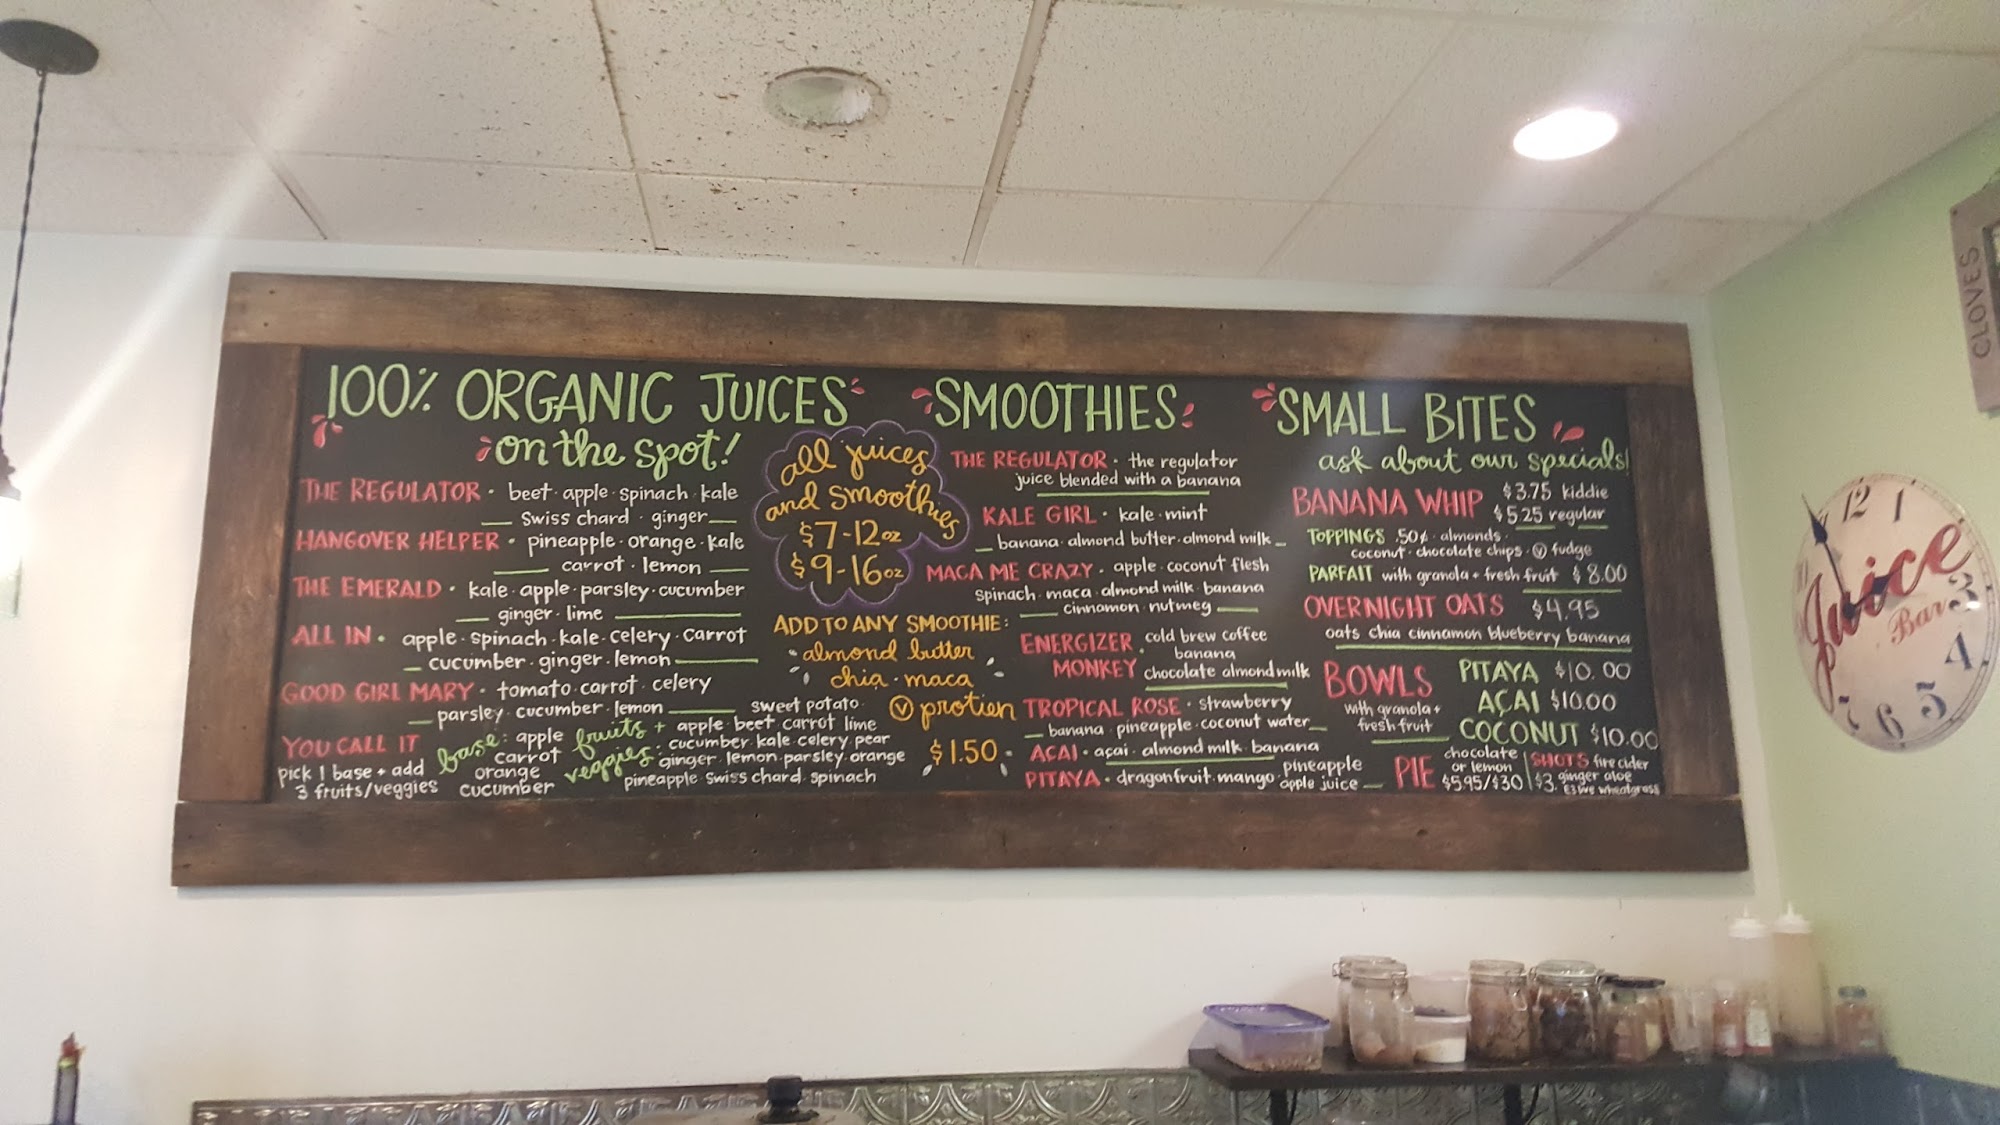 100% ORGANIC JUICES
on the spot!
THE REGULATOR · beet · apple · spinach · kale
Swiss chard · ginger
HANGOVER HELPER · pineapple · orange · kale
carrot · lemon
THE EMERALD · kale · apple · parsley · cucumber
ginger · lime
ALL IN · apple · spinach · kale · celery · carrot
cucumber · ginger · lemon
GOOD GIRL MARY · tomato · carrot · celery
parsley · cucumber · lemon
YOU CALL IT
pick 1 base + add
3 fruits/veggies
base: apple
carrot
orange
cucumber
fruits +
veggies:
sweet potato
apple · beet · carrot · lime
cucumber · kale · celery · pear
ginger · lemon · parsley · orange
pineapple · swiss chard · spinach
all juices
and smoothies
$7-12oz
$9-16oz
ADD TO ANY SMOOTHIE:
almond butter
chia · maca
V protien
$1.50
SMOOTHIES
THE REGULATOR · the regulator
juice blended with a banana
KALE GIRL · kale · mint
banana · almond butter · almond milk
MACA ME CRAZY · apple · coconut flesh
spinach · maca · almond milk · banana
cinnamon · nutmeg
ENERGIZER MONKEY · cold brew coffee
banana
chocolate almond milk
TROPICAL ROSE · strawberry
banana · pineapple · coconut water
AÇAI · açai · almond milk · banana
PITAYA · dragonfruit · mango · pineapple
apple juice
SMALL BITES
ask about our specials!
BANANA WHIP $3.75 kiddie
$5.25 regular
TOPPINGS .50¢ · almonds
coconut · chocolate chips · V fudge
PARFAIT with granola + fresh fruit $8.00
OVERNIGHT OATS $4.95
oats chia cinnamon blueberry banana
BOWLS
with granola +
fresh fruit
PITAYA $10.00
AÇAI $10.00
COCONUT $10.00
PIE chocolate
or lemon
$5.95/$30
SHOTS fire cider
$3. ginger aloe
E3Live wheatgrass
CLOVES
12 1
Juice
Bar
3
4
5
6
7